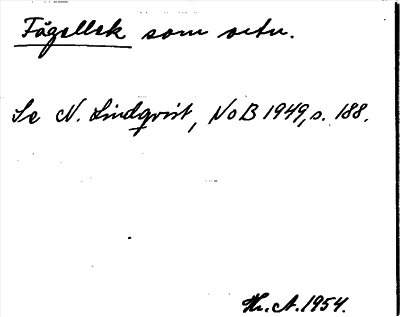 Fågellek som ortn.
Se N. Lindqvist, NoB 1949, s. 188.
Hr. A. 1954.